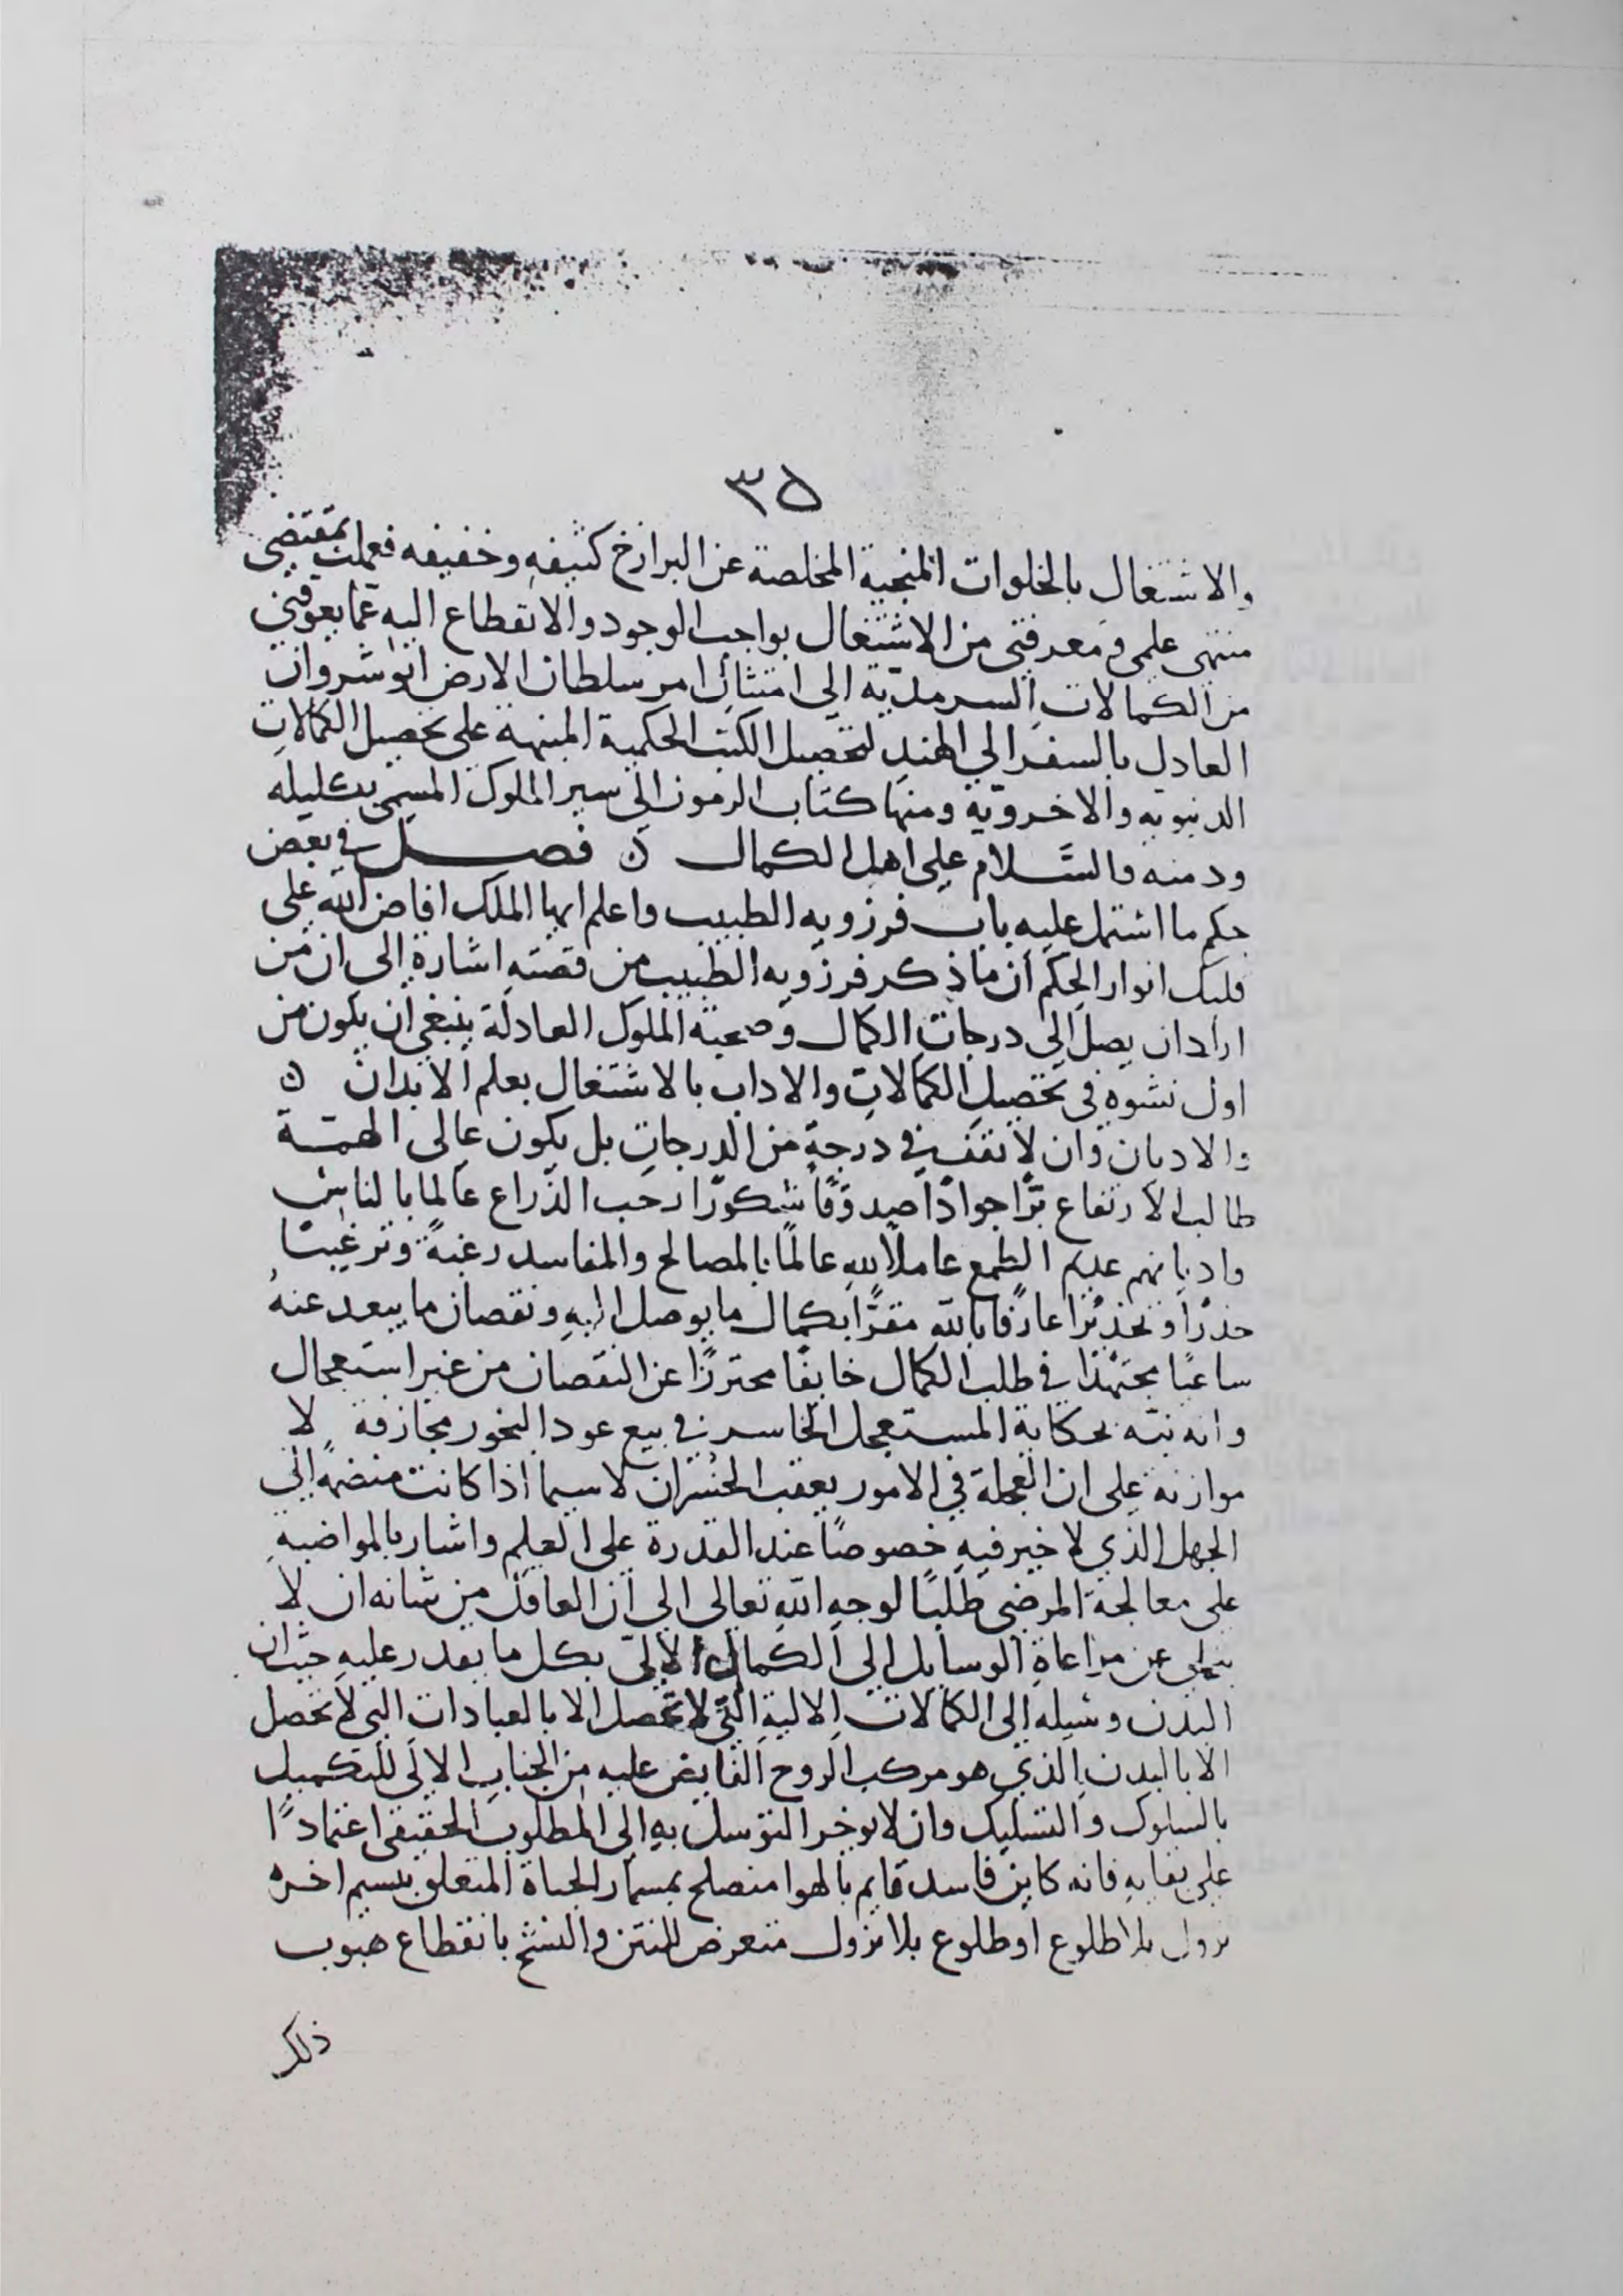 ٣٥
والاشتغال بالخلوات المنجية المخلصة عن البرازخ كثيفه وخفيفه فعملت بمقتضى
منتهى علمى ومعرفتى من الاشتغال بواجب الوجود والانقطاع اليه عما يعوقنى
من الكمالات السرمديّة الى امتثال امر سلطان الارض انوشروان
العادل بالسفر الي الهند لتحصيل الكتب الحكمية المنبهة على تحصيل الكمالات
الدنيويه والاخرويّة ومنها كتاب الرموز الى سير الملوك المسمى بكليله
ودمنه والسَّلام على اهل الكمال ۵ فصل في بعض
حكم ما اشتمل عليه باب فرزويه الطبيب واعلم ايها الملك افاض الله على
قلبك انوار الحِكَم ان ما ذكر فرزويه الطبيب من قصته اشارة الى ان من
اراد ان يصل الى درجات الكمال وصحبة الملوك العادلة ينبغى ان يكون من
اول نشوه فى تحصيل الكمالات والاداب بالاشتغال بعلم الابدان ۵
والاديان وان لا تقف في درجة من الدرجات بل يكون عالى الهمّة
طالب الارتفاع برًّا جوادًا صدوقًا شكورًا رحب الذّراع عالما بالناس
واديانهم عديم الطمع عاملاً لله عالمًا بالمصالح والمفاسد رغبةً وترغيبًا
حذرًا وتحذيرًا عارفًا بالله مقرًّا بكمال ما يوصل اليهِ ونقصان ما يبعد عنهُ
ساعيًا مجتهدًا في طلب الكمال خايفًا محترزًا عن النقصان من غير استعجال
وانه نبّه بحكاية المستعجل الخاسر في بيع عود البخور مجازفة لا
موازنة على ان العجلة في الامور يعقب الخُسران لا سيما اذا كانت منضمة الى
الجهل الذي لا خير فيهِ خصوصًا عند القدرة على العلم واشار بالمواضبهِ
على معالجة المرضى طلبًا لوجه الله تعالى الى ان العاقل من شانه ان لا
يتخلى عن مراعاة الوسايل الى الكمال الالىّ بكل ما يقدر عليهِ حيث ان
البدن وسيله الى الكمالات الالية التي لا تحصل الا بالعبادات التي لا تحصل
الا بالبدن الذي هو مركب الروح الفايض عليه من الجناب الالى للتكميل
بالسلوك والتسليك وان لا يوخر التوسل بهِ الى المطلوب الحقيقى اعتمادًا
على بقايهِ فانه كاين فاسد قايم بالهوا منصلح بمسمار الحياة المتعلق بنسيم اخره
نزول بلا طلوع او طلوع بلا نزول متعرض للنتن والنشخ بانقطاع هبوب
ذلك